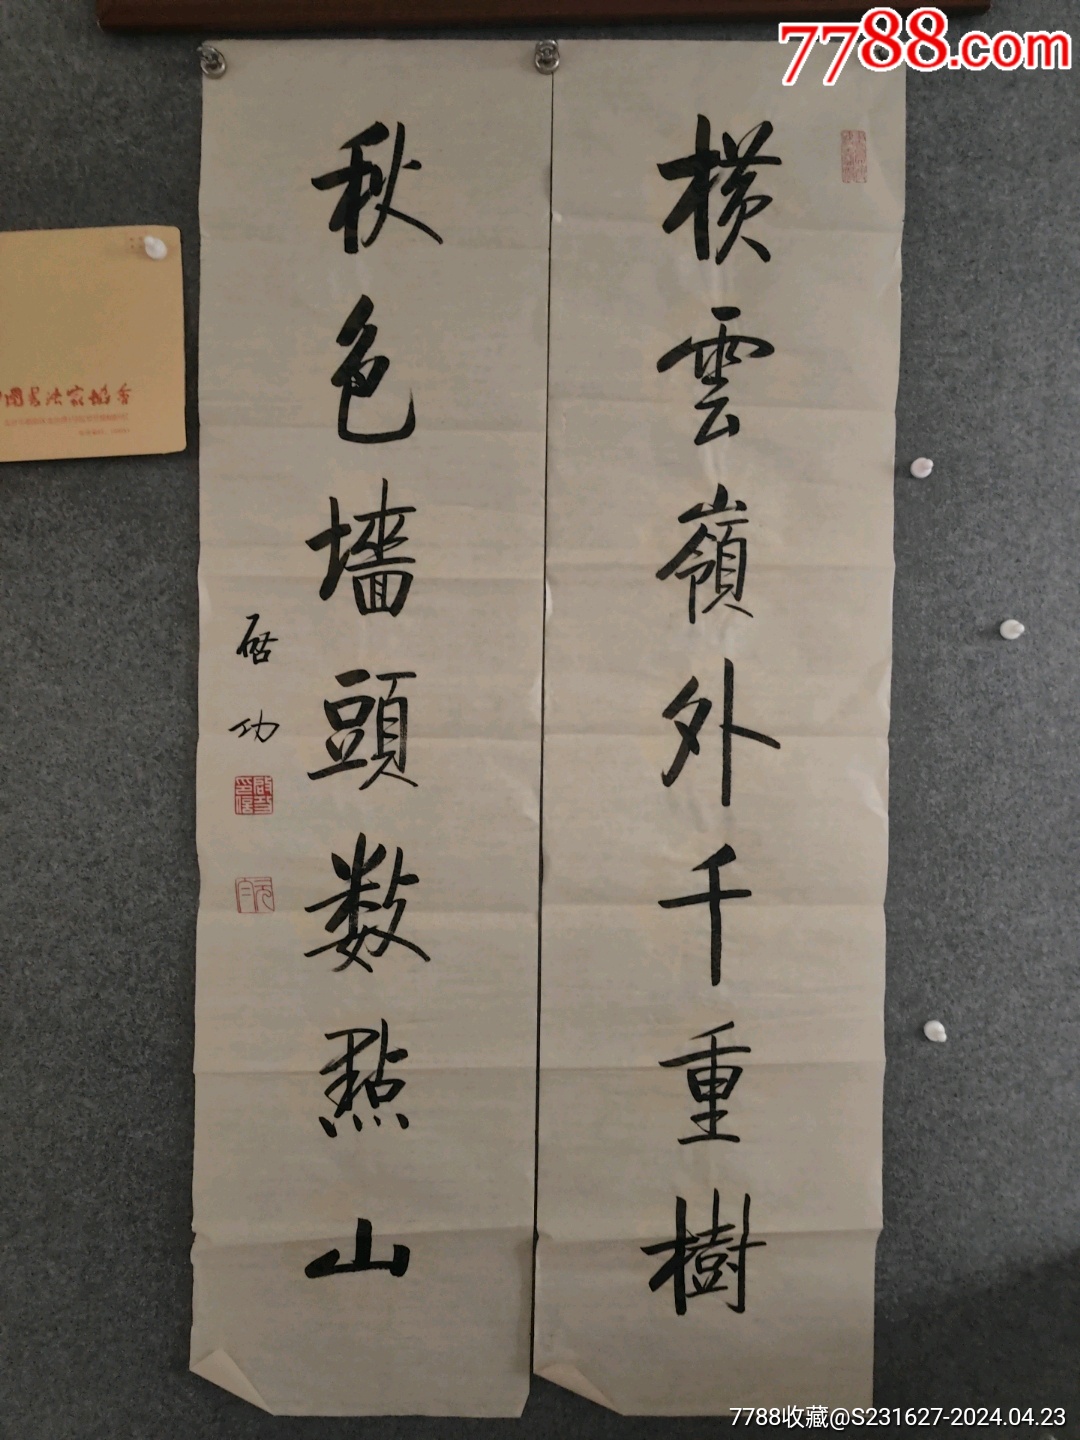 7788.com
横雲嶺外千重樹
秋色墙頭数點山
启功
7788收藏@S231627-2024.04.23